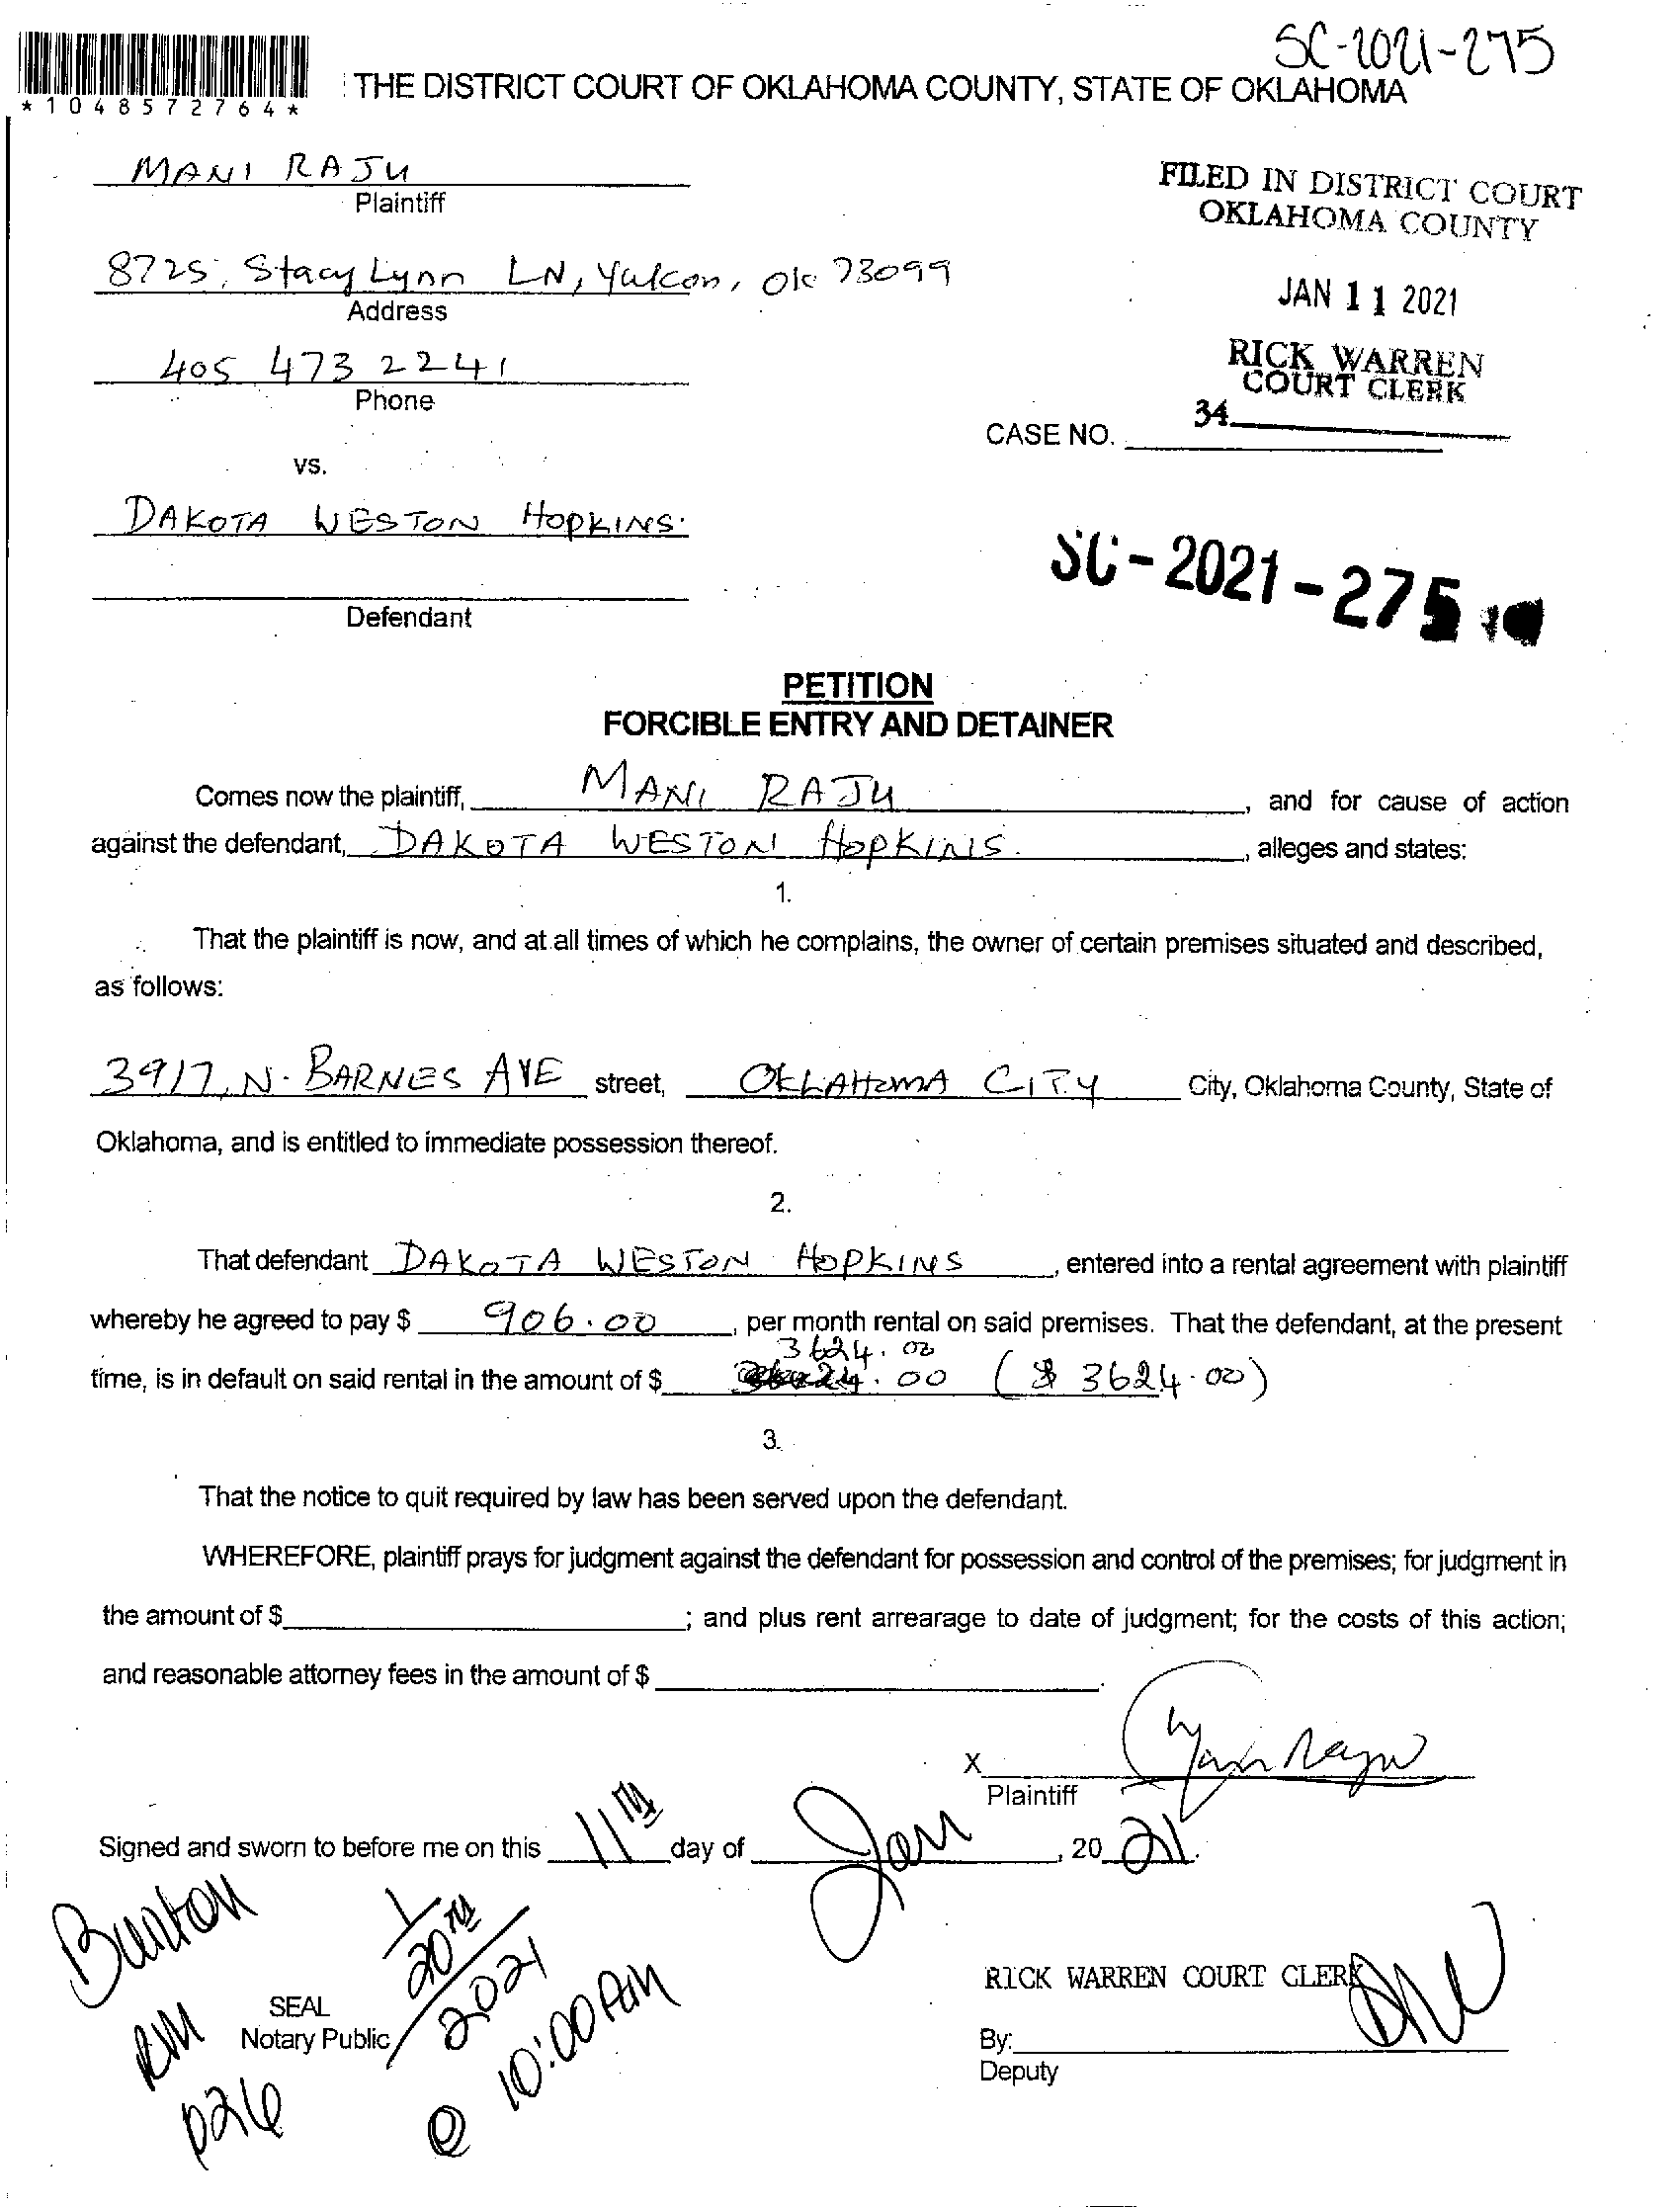 SC-2021-275
*1048572764*
THE DISTRICT COURT OF OKLAHOMA COUNTY, STATE OF OKLAHOMA
MANI RAJU
Plaintiff
FILED IN DISTRICT COURT
OKLAHOMA COUNTY
8725, Stacy Lynn LN, Yukon, OK 73099
Address
JAN 11 2021
405 473 2241
Phone
RICK WARREN
COURT CLERK
34
CASE NO.
vs.
DAKOTA WESTON HOPKINS.
Defendant
SC-2021-275
PETITION
FORCIBLE ENTRY AND DETAINER
Comes now the plaintiff, MANI RAJU, and for cause of action
against the defendant, DAKOTA WESTON HOPKINS., alleges and states:
1.
That the plaintiff is now, and at all times of which he complains, the owner of certain premises situated and described,
as follows:
3917, N. BARNES AVE street, OKLAHOMA CITY City, Oklahoma County, State of
Oklahoma, and is entitled to immediate possession thereof.
2.
That defendant DAKOTA WESTON HOPKINS, entered into a rental agreement with plaintiff
whereby he agreed to pay $ 906.00, per month rental on said premises. That the defendant, at the present
3624.00
time, is in default on said rental in the amount of $ .00 ($ 3624.00)
3.
That the notice to quit required by law has been served upon the defendant.
WHEREFORE, plaintiff prays for judgment against the defendant for possession and control of the premises; for judgment in
the amount of $ ; and plus rent arrearage to date of judgment; for the costs of this action;
and reasonable attorney fees in the amount of $ .
X
Plaintiff
Signed and sworn to before me on this 11TH day of Jan, 20 21.
Burton
RM
226
1/20TH/2021
@ 10:00 AM
SEAL
Notary Public
RICK WARREN COURT CLERK
By:
Deputy